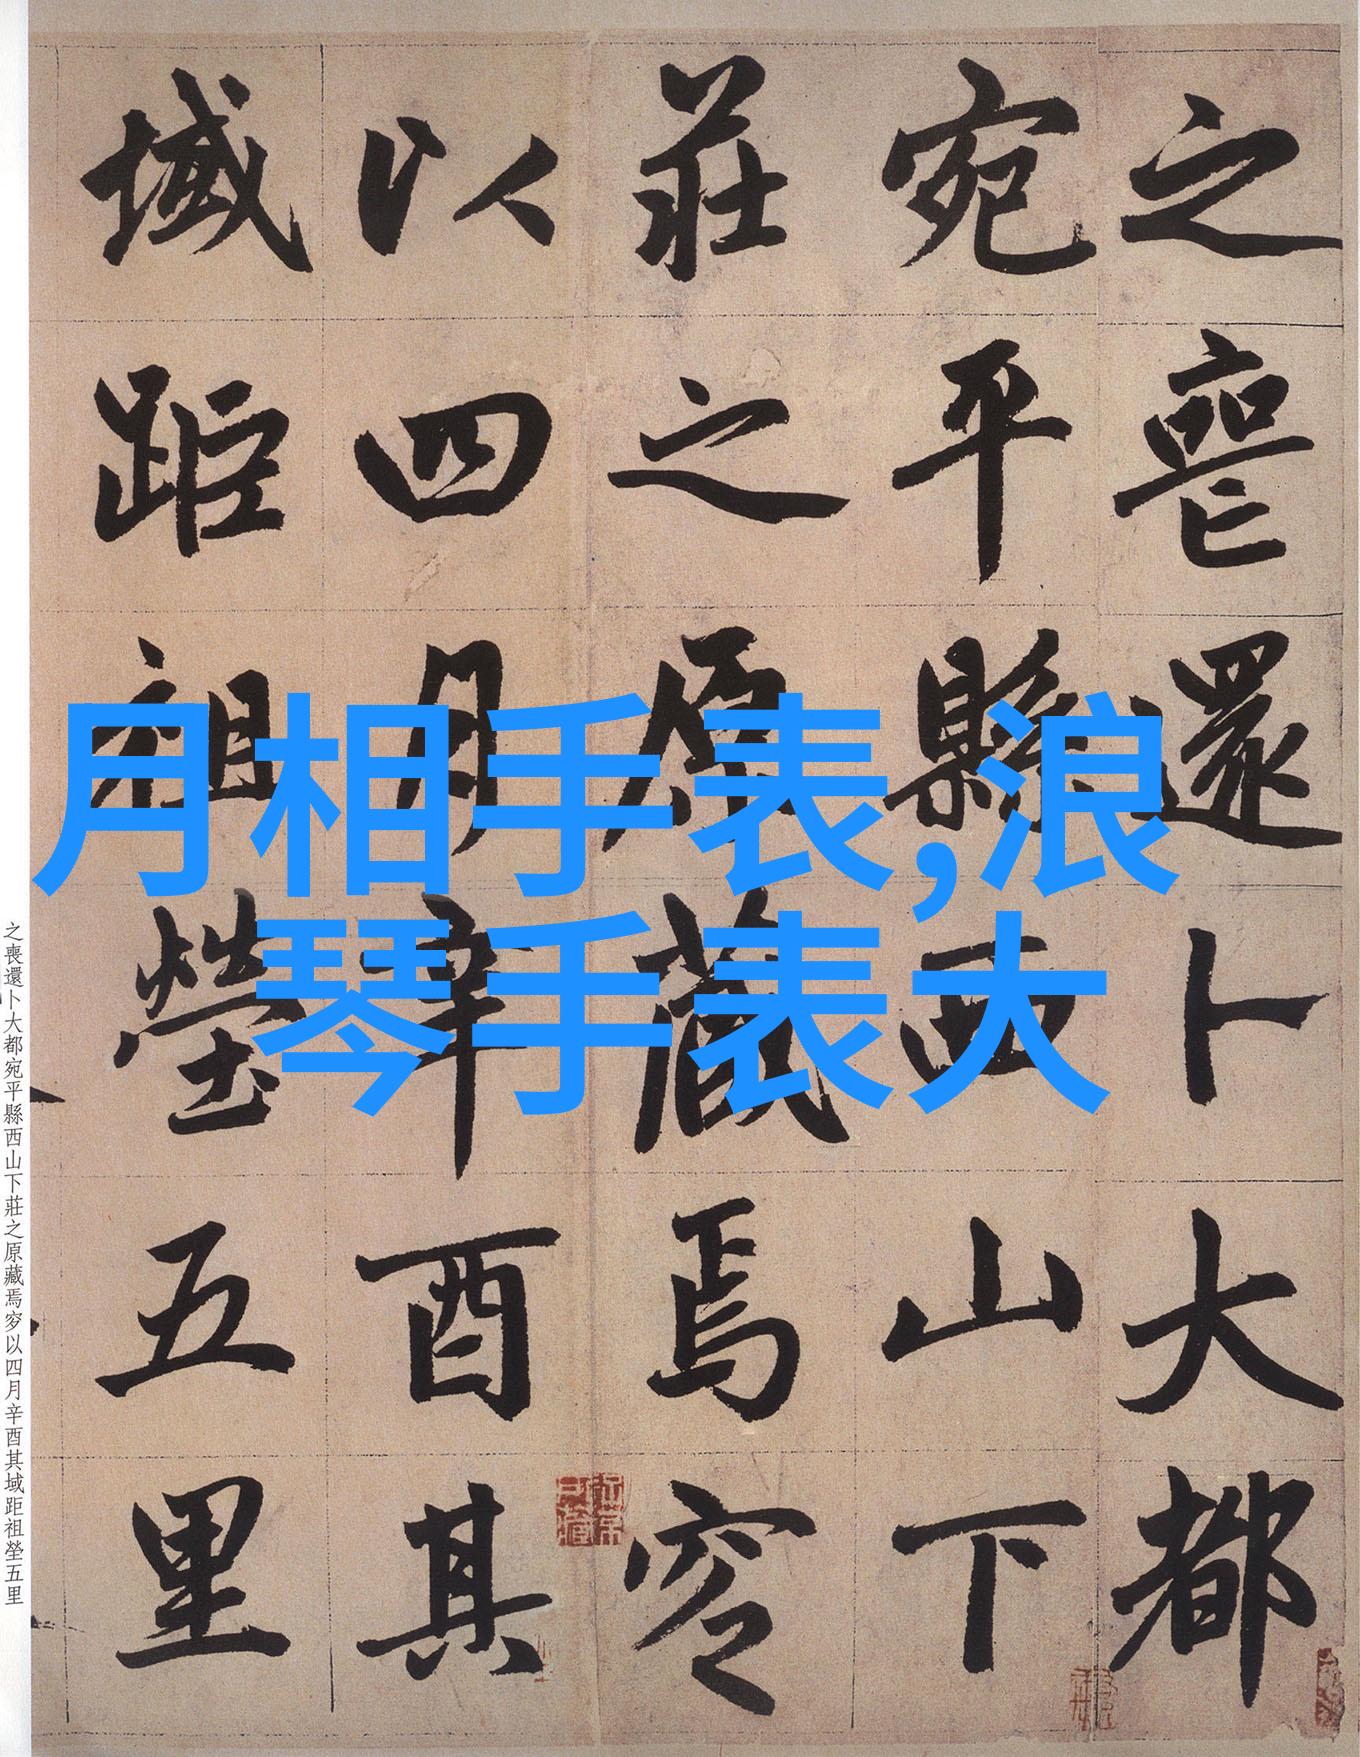 之喪還卜大都
宛平縣西山下
莊之原藏焉穸
以四月辛酉其
域距祖塋五里
月相手表,浪
琴手表大
之喪還卜大都宛平縣西山下莊之原藏焉穸以四月辛酉其域距祖塋五里